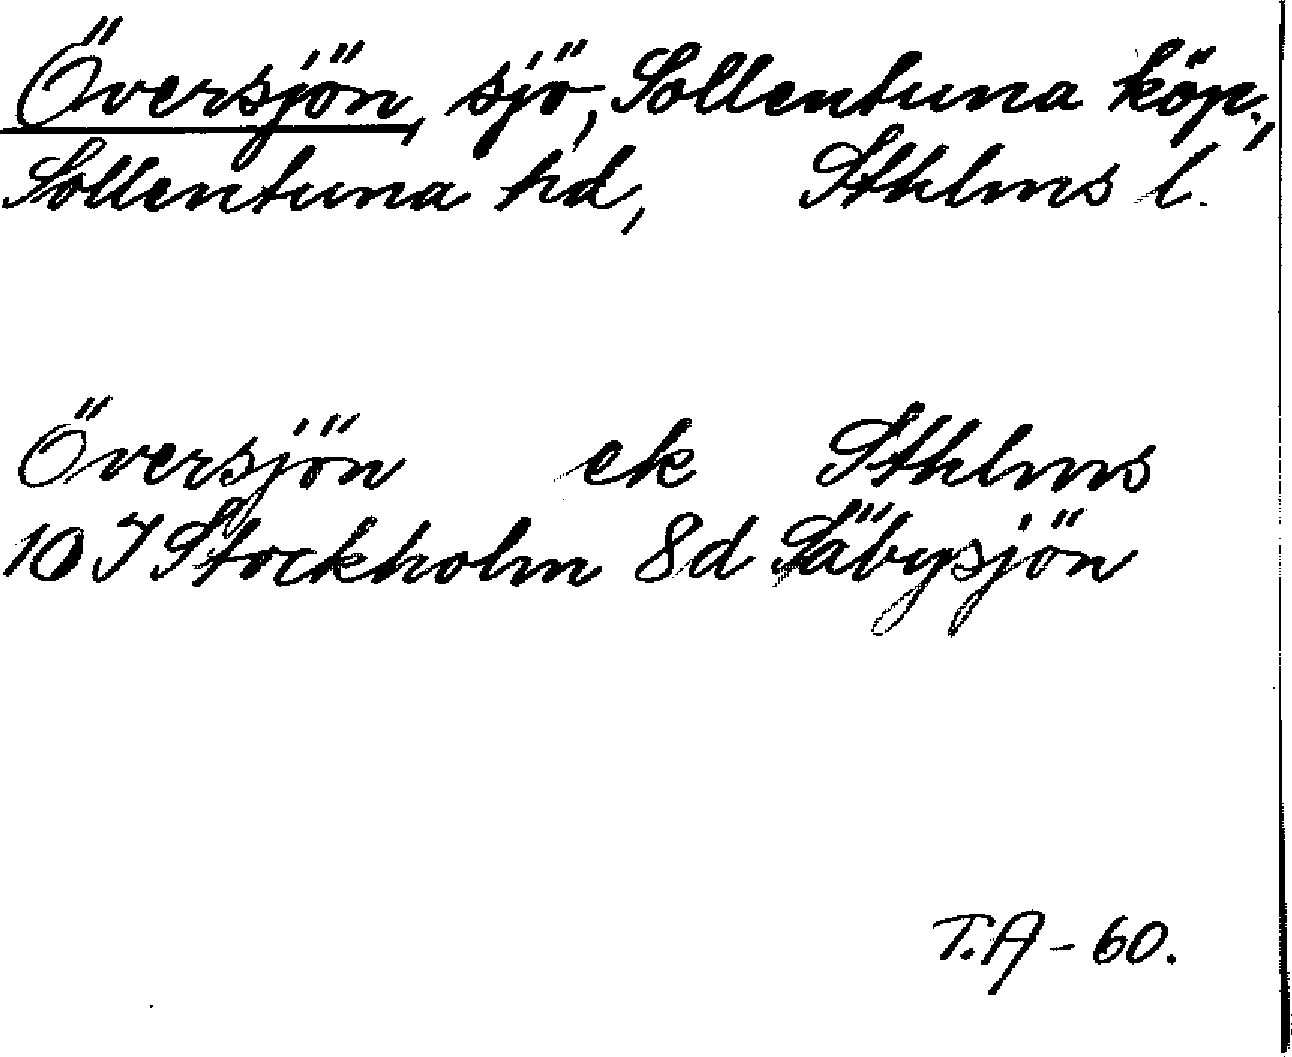 Översjön, sjö, Sollentuna köp.,
Sollentuna hd, Sthlms l.
Översjön ek Sthlms
10 I Stockholm 8d Säbysjön
T.A - 60.